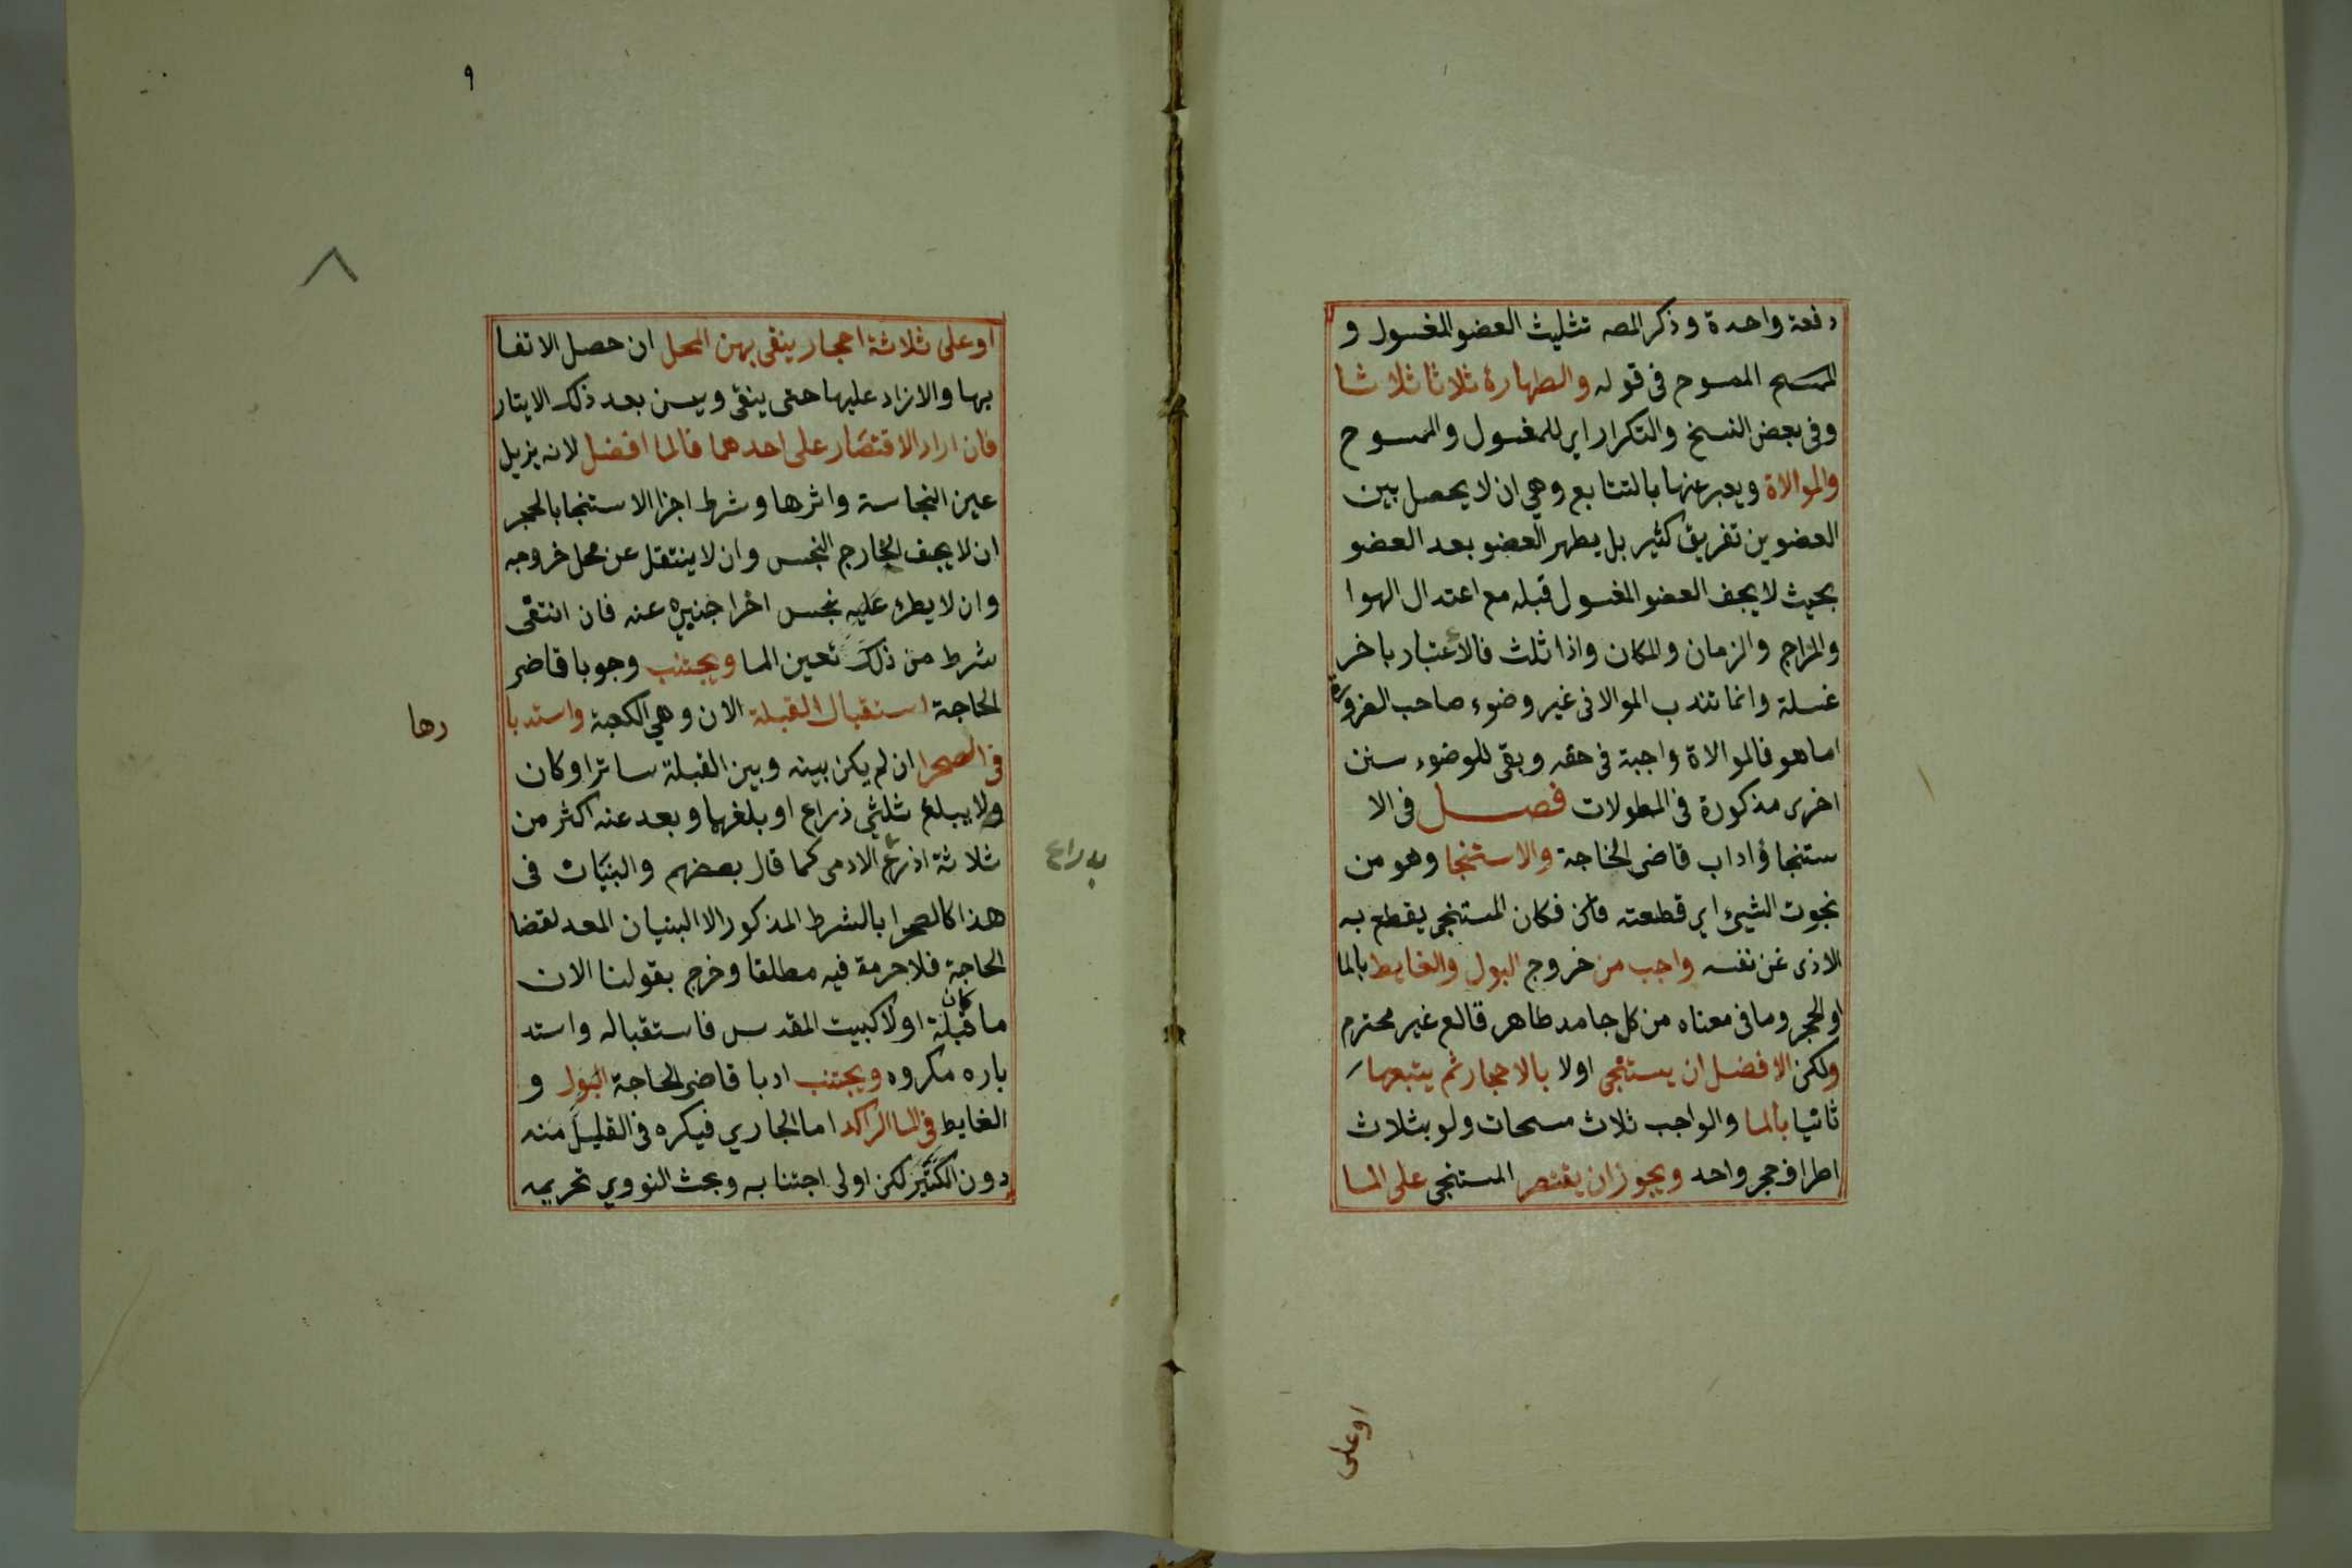 دفعة واحدة وذكر المصه تثليث العضو المغسول و
المسح الممسوح فى قوله والطهارة ثلاثا ثلاثا
وفى بعض النسخ والتكرار اي للمغسول والممسوح
والموالاة ويعبر عنها بالتتابع وهي ان لا يحصل بين
العضوين تفريق كثير بل يطهر العضو بعد العضو
بحيث لا يجف العضو المغسول قبله مع اعتدال الهوا
والمزاج والزمان والمكان واذا ثلث فالاعتبار باخر
غسلة وانما تندب الموالا فى غير وضوء صاحب الضرورة
اما هو فالموالاة واجبة فى حقه وبقى للوضوء سنن
اخرى مذكورة فى المطولات فصل فى الا
ستنجا واداب قاضى الحاجة والاستنجا وهو من
نجوت الشيء اي قطعته فكان المستنجى يقطع به
الاذى عن نفسه واجب من خروج البول والغايط بالما
او الحجر وما فى معناه من كل جامد طاهر قالع غير محترم
ولكن الافضل ان يستنجى اولا بالاحجار ثم يتبعها
ثانيا بالما والواجب ثلاث مسحات ولو بثلاث
اطراف حجر واحد ويجوز ان يقتصر المستنجى على الما
اوعلى
٩
٨
او على ثلاثة احجار ينقى بهن المحل ان حصل الانقا
بها والا زاد عليها حتى ينقى ويسن بعد ذلك الايتار
فان اراد الاقتصار على احدهما فالما افضل لانه يزيل
عين النجاسة واثرها وشرط اجزا الاستنجا بالحجر
ان لا يجف الخارج النجس وان لا ينتقل عن محل خروجه
وان لا يطرء عليه نجس اخر اجنبي عنه فان انتفى
شرط من ذلك تعين الما ويجتنب وجوبا قاضى
الحاجة استقبال القبلة الان وهي الكعبة واستدبا
رها
فى الصحرا ان لم يكن بينه وبين القبلة ساتر او كان
ولا يبلغ ثلثي ذراع او بلغهما وبعد عنه اكثر من
ثلاثة اذرع الادمى كما قال بعضهم والبنيان فى
بدراع
هذا كالصحرا بالشرط المذكور الا البنيان المعد لقضا
الحاجة فلا حرمة فيه مطلقا وخرج بقولنا الان
ما كان قبلة اولا كبيت المقدس فاستقباله واستد
باره مكروه ويجتنب ادبا قاضى الحاجة البول و
الغايط فى الما الراكد اما الجاري فيكره فى القليل منه
دون الكثير لكن اولى اجتنابه وبحث النووي تحريمه